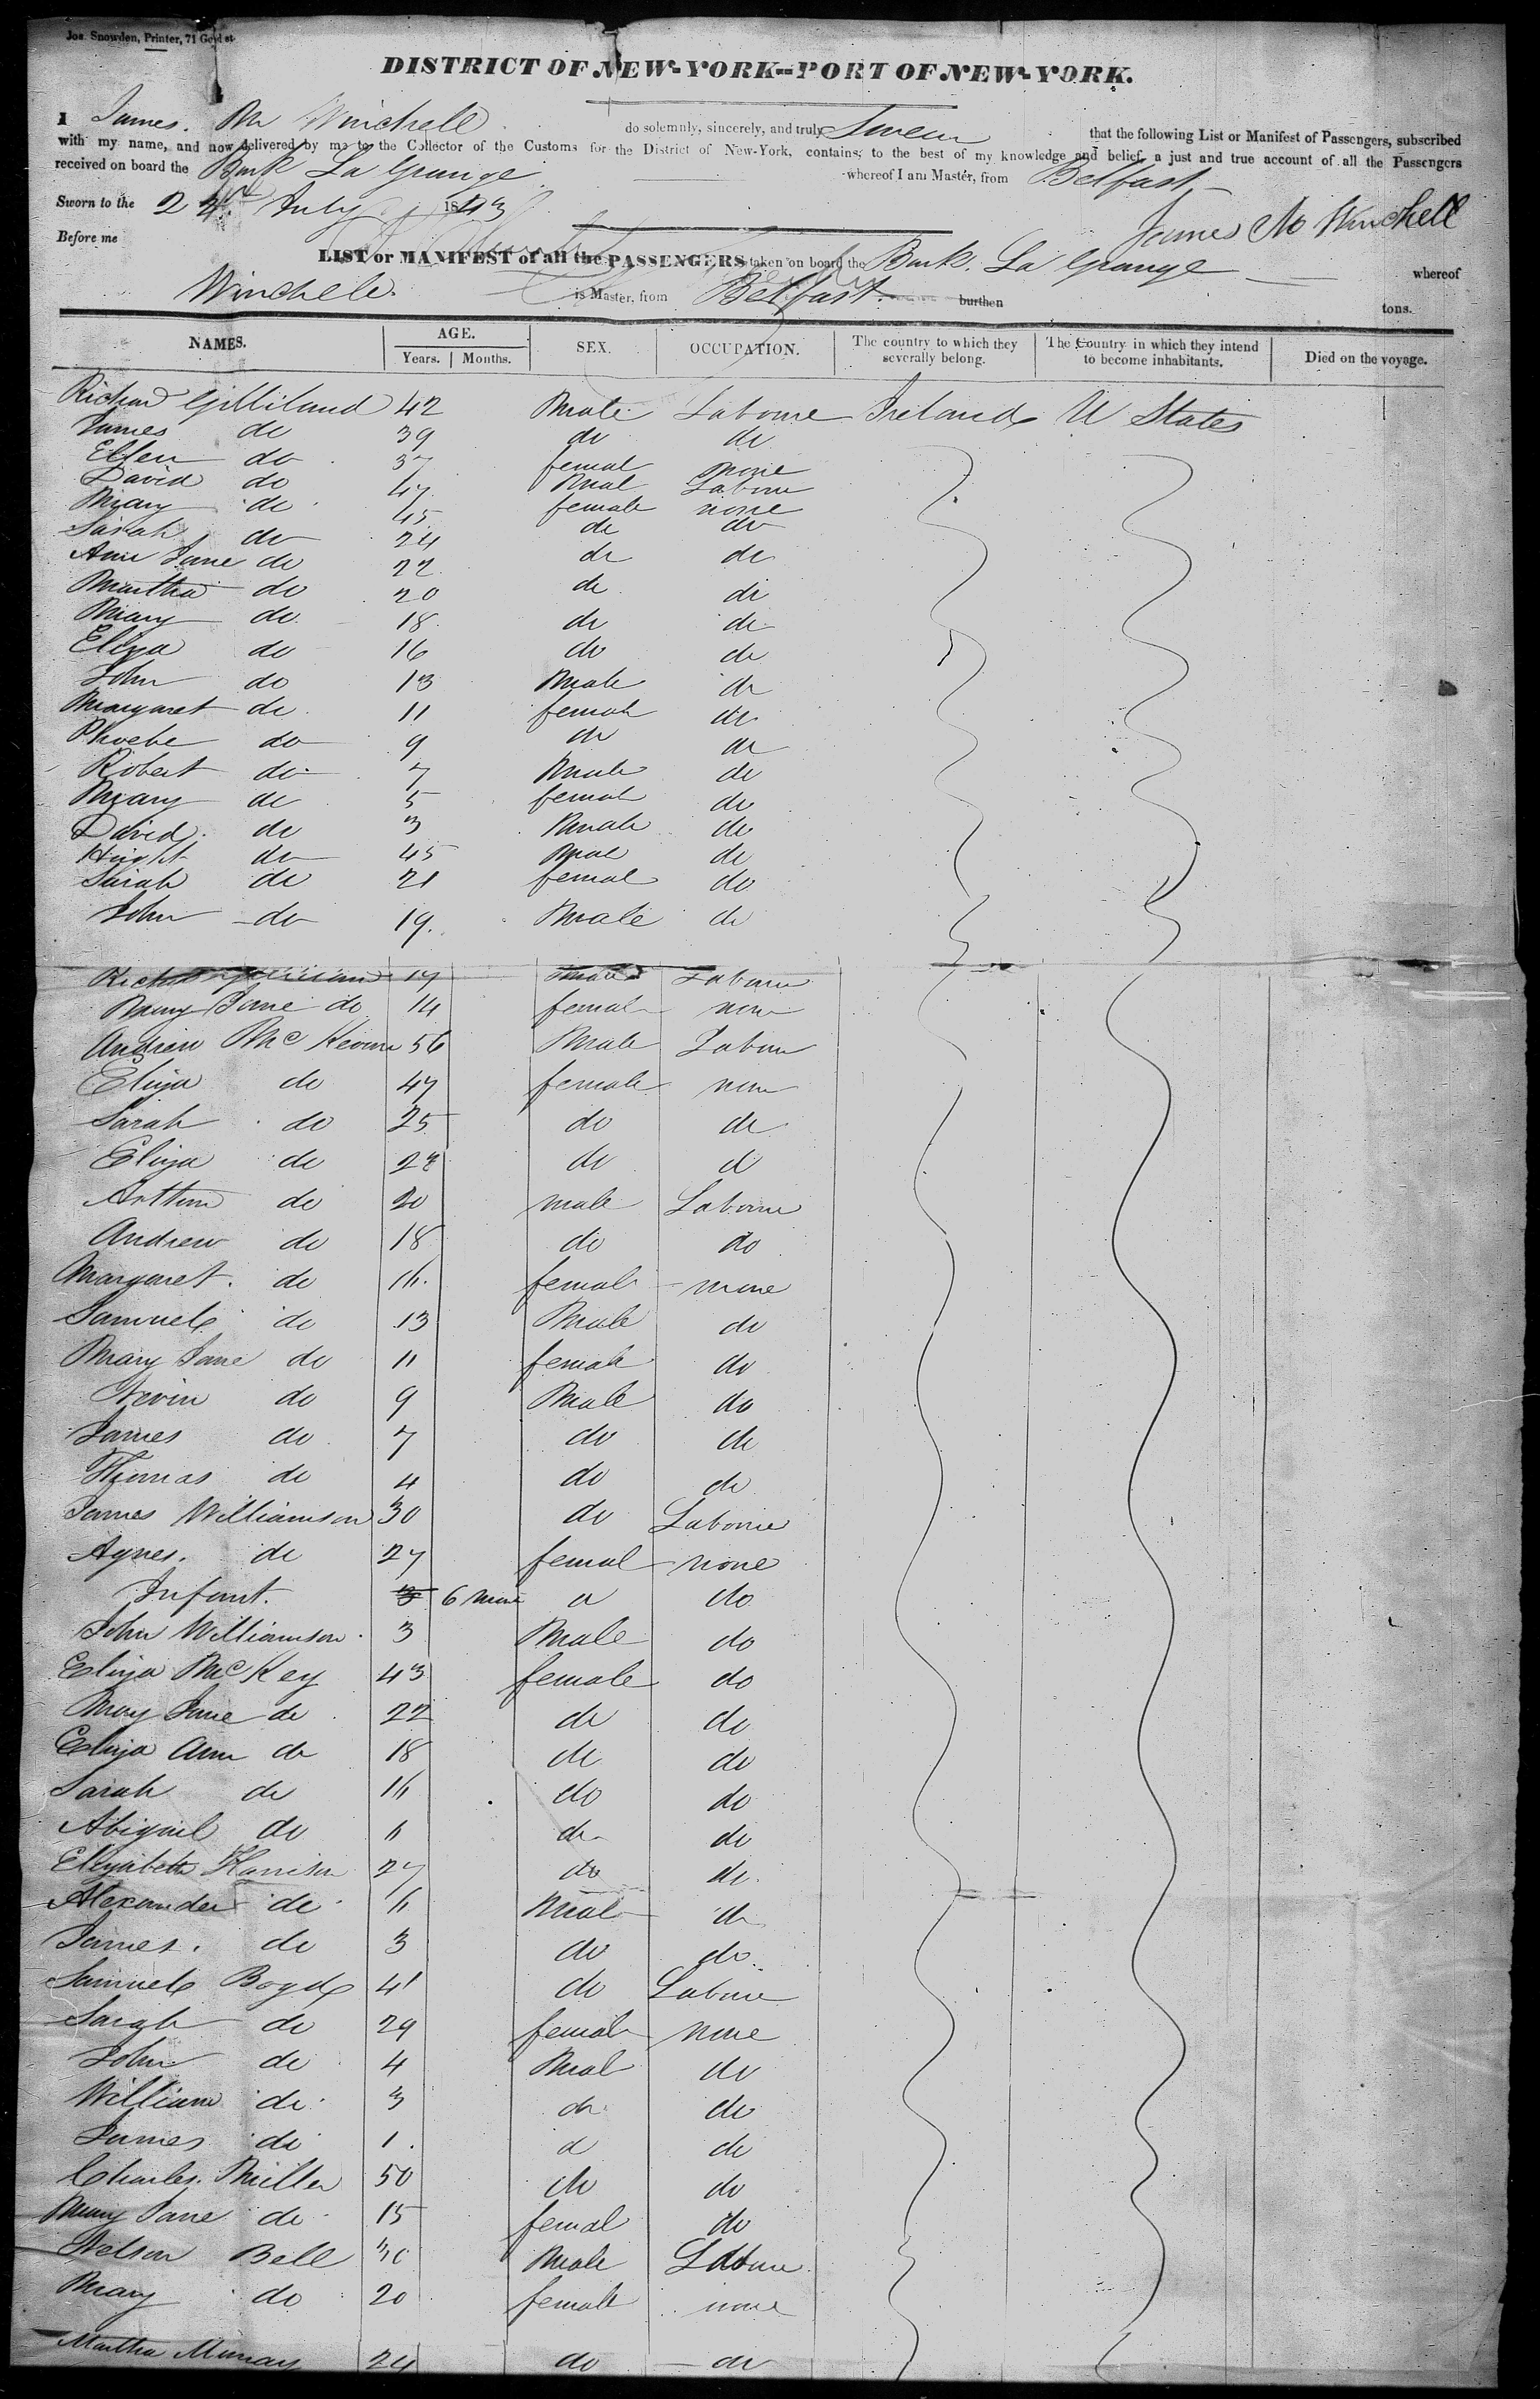 Jos. Snowden, Printer, 71 Gold st
DISTRICT OF NEW-YORK--PORT OF NEW-YORK.
I James. M Winchell do solemnly, sincerely, and truly Swear that the following List or Manifest of Passengers, subscribed
with my name, and now delivered by me to the Collector of the Customs for the District of New-York, contains, to the best of my knowledge and belief, a just and true account of all the Passengers
received on board the Bark La Grange whereof I am Master, from Belfast,
Sworn to the 24th July 1843
James M Winchell
Before me
LIST or MANIFEST of all the PASSENGERS taken on board the Bark. La Grange whereof
Winchell. is Master, from Belfast. burthen tons.
NAMES. AGE. Years. Months. SEX. OCCUPATION. The country to which they severally belong. The Country in which they intend to become inhabitants. Died on the voyage.
Richard Gilliland 42 Male Laboure Ireland U States
James do 39 do do
Ellen do 37 femal none
David do 47 Mal Laboure
Mary do 45 female none
Sarah do 24 do do
Ann Jane do 22 do do
Martha do 20 do do
Mary do 18 do do
Eliza do 16 do do
John do 13 Male do
Margaret do 11 female do
Phoebe do 9 do do
Robert do 7 Male do
Mary do 5 female do
David do 3 Male do
do 45 Male do
Sarah do 21 femal do
John do 19. Male do
Richard 17 Male Laboure
Mary Jane do 14 femal none
Andrew McKeown 56 Male Labour
Eliza do 47 female none
Sarah do 25 do do
Eliza do do d
Arthur do 20 male Laboure
Andrew do 18 do do
Margaret. do 16. female none
Samuel do 13 Male do
Mary Jane do 11 female do
Nevin do 9 Male do
James do 7 do do
Thomas do 4 do do
James Williamson 30 do Laboure
Agnes. do 27 femal none
Infant. 3 6 d do
John Williamson 3 Male do
Eliza McKey 43 female do
Mary Jane do 22 do do
Eliza Ann do 18 do do
Sarah do 16 do do
Abigail do do do
Elizabeth 27 do do
Alexander do Mal do
James. do 3 do do
Samuel Boyd 41 do Laboure
Sarah do 29 female none
John do 4 Mal do
William do 3 do do
James do 1. d do
Charles. Miller 50 do do
Mary Jane do 15 femal do
Nelson Bell 30 Male Laboure
Mary do 20 female none
Martha Murray 24 do do